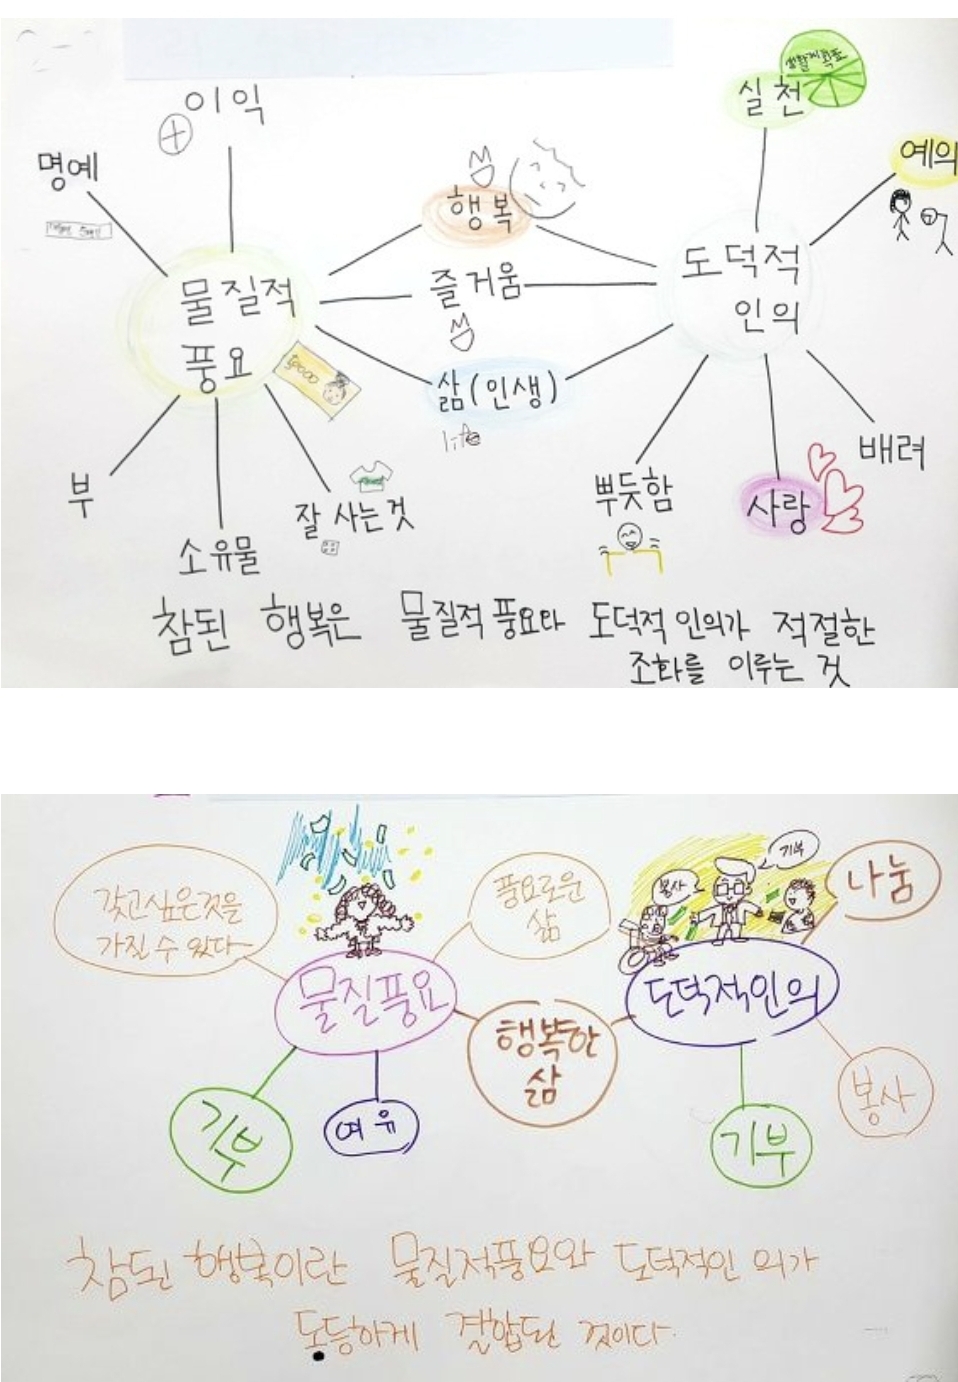 이익
명예
실천
생활계획표
예의
행복
즐거움
삶(인생)
life
물질적
풍요
도덕적
인의
부
소유물
잘 사는 것
뿌듯함
사랑
배려
참된 행복은 물질적 풍요와 도덕적 인의가 적절한
조화를 이루는 것
갖고싶은것을
가질 수 있다
풍요로운
삶
봉사
기부
나눔
물질풍요
도덕적인의
행복한
삶
기부
여유
기부
봉사
참된 행복이란 물질적풍요와 도덕적인 의가
동등하게 결합된 것이다.